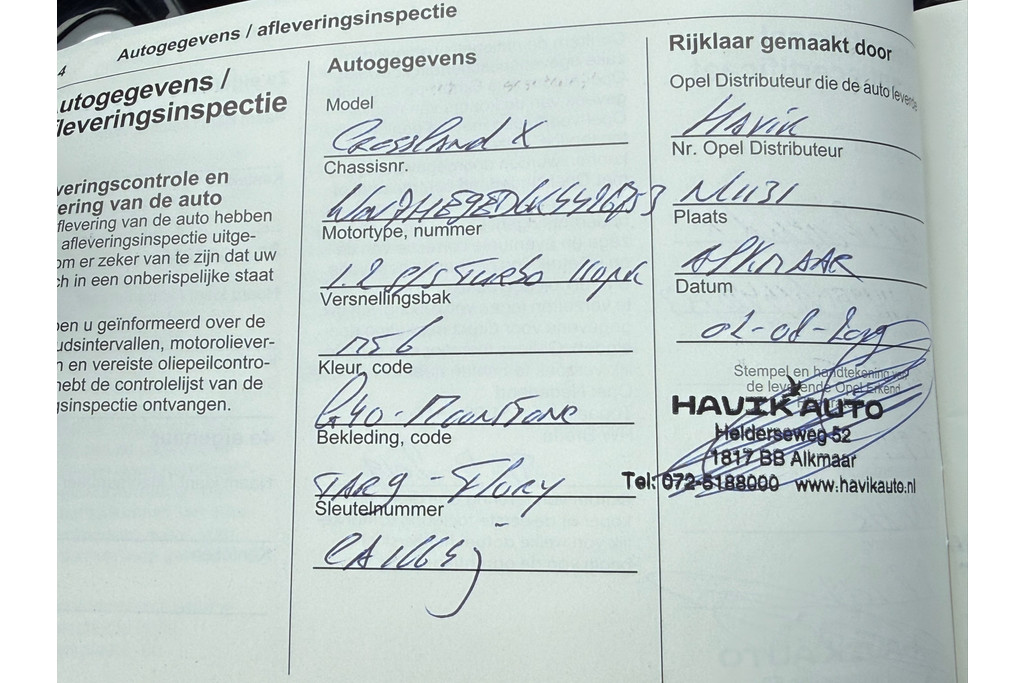 4
Autogegevens / afleveringsinspectie
utogegevens /
fleveringsinspectie
veringscontrole en
ering van de auto
flevering van de auto hebben
afleveringsinspectie uitge-
om er zeker van te zijn dat uw
ch in een onberispelijke staat
en u geïnformeerd over de
udsintervallen, motoroliever-
n en vereiste oliepeilcontro-
hebt de controlelijst van de
sinspectie ontvangen.
Autogegevens
Model
Crossland X
Chassisnr.
Motortype, nummer
1.2 S/S Turbo 110pk
Versnellingsbak
M5 6
Kleur, code
G40 - Moonstone
Bekleding, code
TARQ -
Sleutelnummer
Rijklaar gemaakt door
Opel Distributeur die de auto leverde
Havik
Nr. Opel Distributeur
Plaats
Alkmaar
Datum
02-08-2019
Stempel en handtekening van
de leverende Opel Erkend
HAVIK AUTO
Helderseweg 52
1817 BB Alkmaar
Tel: 072-5188000 www.havikauto.nl